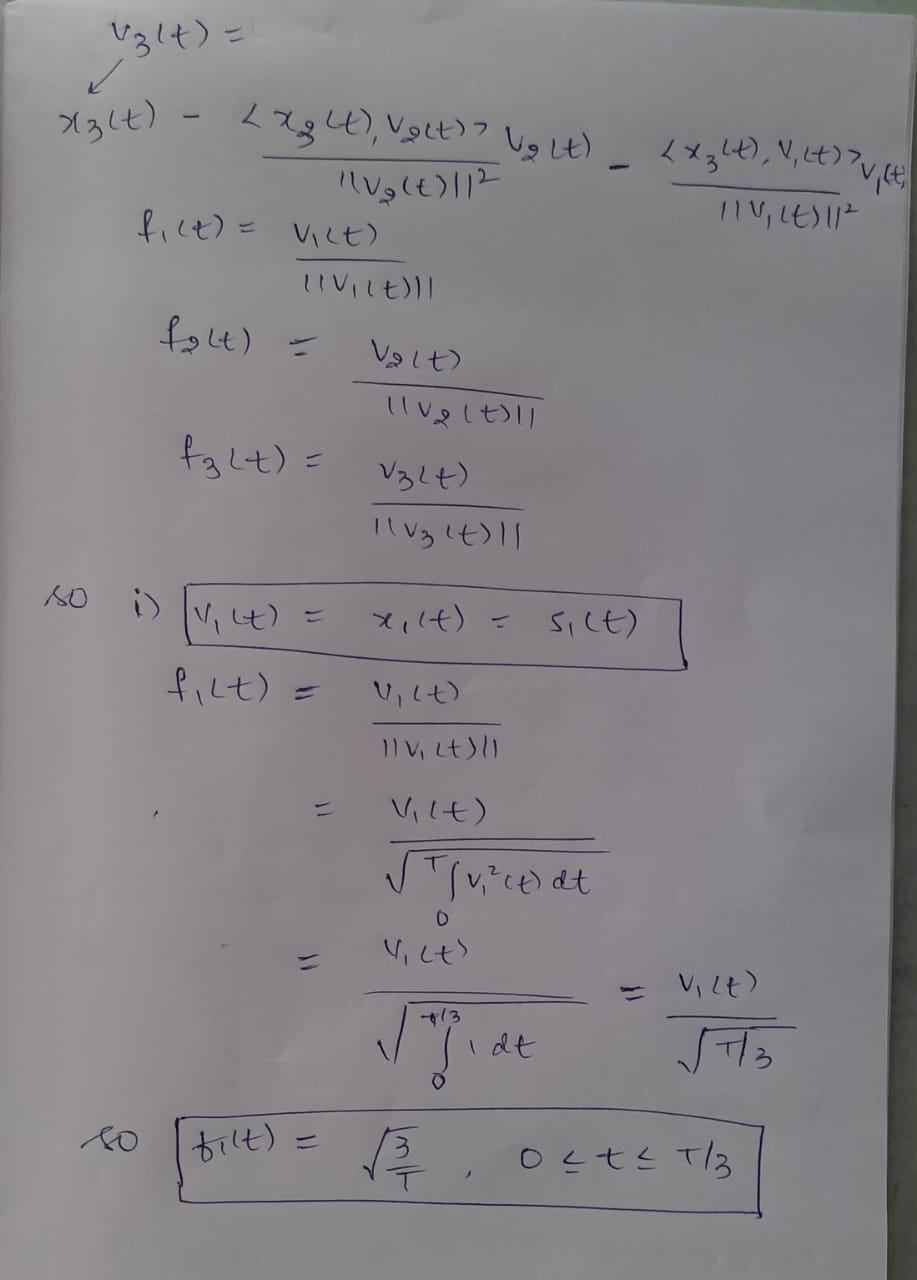 v₃(t) =
x₃(t) - <x₃(t), v₂(t)> / ||v₂(t)||² v₂(t) - <x₃(t), v₁(t)> / ||v₁(t)||² v₁(t)
f₁(t) = v₁(t) / ||v₁(t)||
f₂(t) = v₂(t) / ||v₂(t)||
f₃(t) = v₃(t) / ||v₃(t)||
so i) v₁(t) = x₁(t) = s₁(t)
f₁(t) = v₁(t) / ||v₁(t)||
= v₁(t) / √(₀∫ᵀ v₁²(t) dt)
= v₁(t) / √(∫₀^(T/3) 1 dt) = v₁(t) / √(T/3)
so f₁(t) = √(3/T), 0 ≤ t ≤ T/3